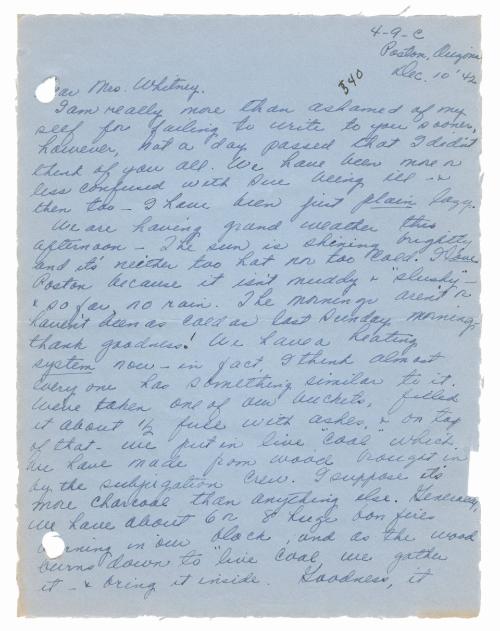 4-9-C
Poston, Arizona
Dec. 10 '42
340
ear Mrs. Whitney.
I am really more than ashamed of my
self for failing to write to you sooner,
however, not a day passed that I didn't
think of you all. We have been more or
less confused with Sue being ill - &
then too - I have been just plain lazy.
We are having grand weather this
afternoon - The sun is shining brightly
and it's neither too hot nor too cold. I love
Poston because it isn't muddy & "slushy" -
& so far, no rain. The mornings aren't or
haven't been as cold as last Sunday morning,
thank goodness! We have a heating
system now - in fact, I think almost
every one has something similar to it.
We've taken one of our buckets, filled
it about 1/2 full with ashes, & on top
of that - we put in live "coal" which
we have made from wood brought in
by the subjugation crew. I suppose it's
more charcoal than anything else. Generally,
we have about 6 or 8 huge bon fires
burning in our block, and as the wood
burns down to "live coal" we gather
it - & bring it inside. Goodness, it